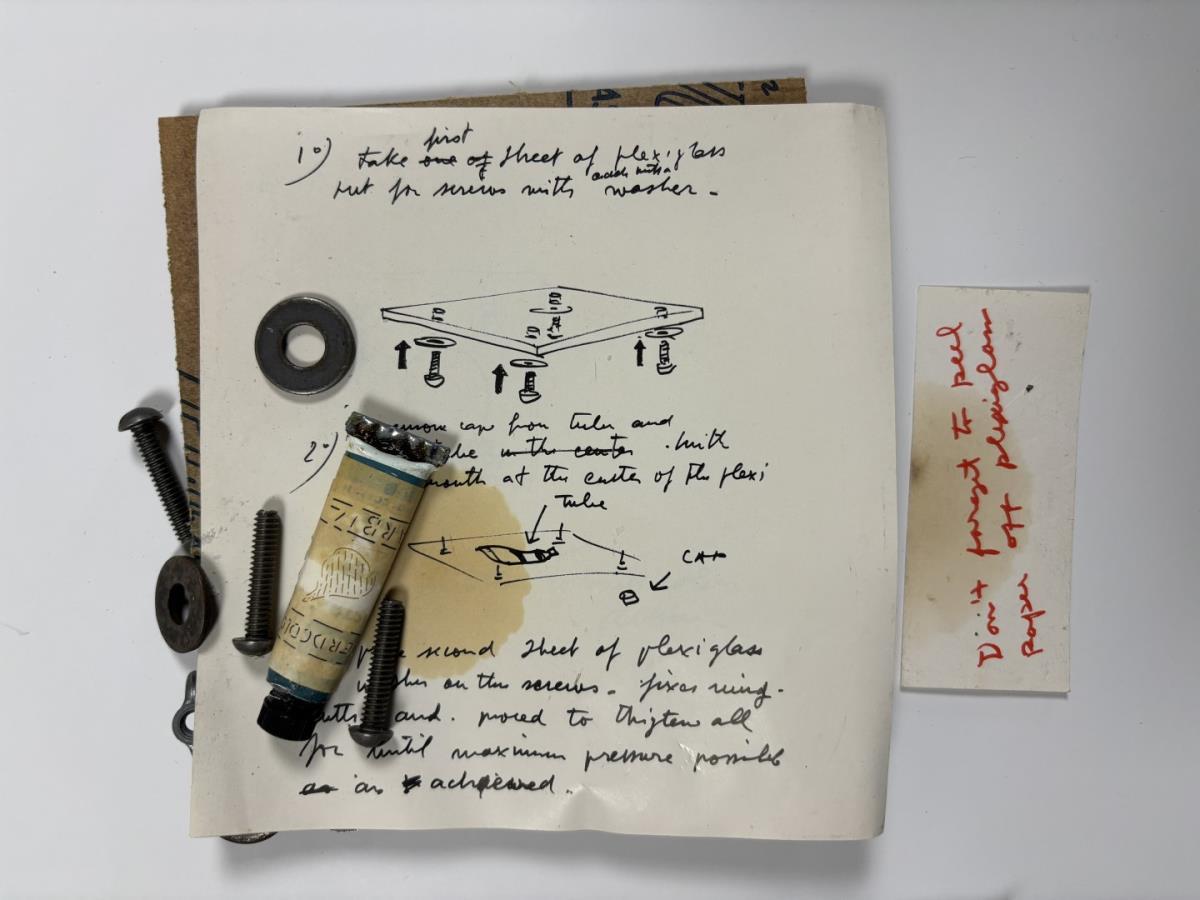 1°) take one of first sheet of plexiglass
put for screws with each with a washer.
2°) cap from tube and
in the center. with
mouth at the center of the plexi
tube
CAP
second sheet of plexiglass
on the screws. fixes wing.
and. proced to thigten all
for until maximum pressure possible
as as achieved.
Don't forget to peel
paper off plexiglass